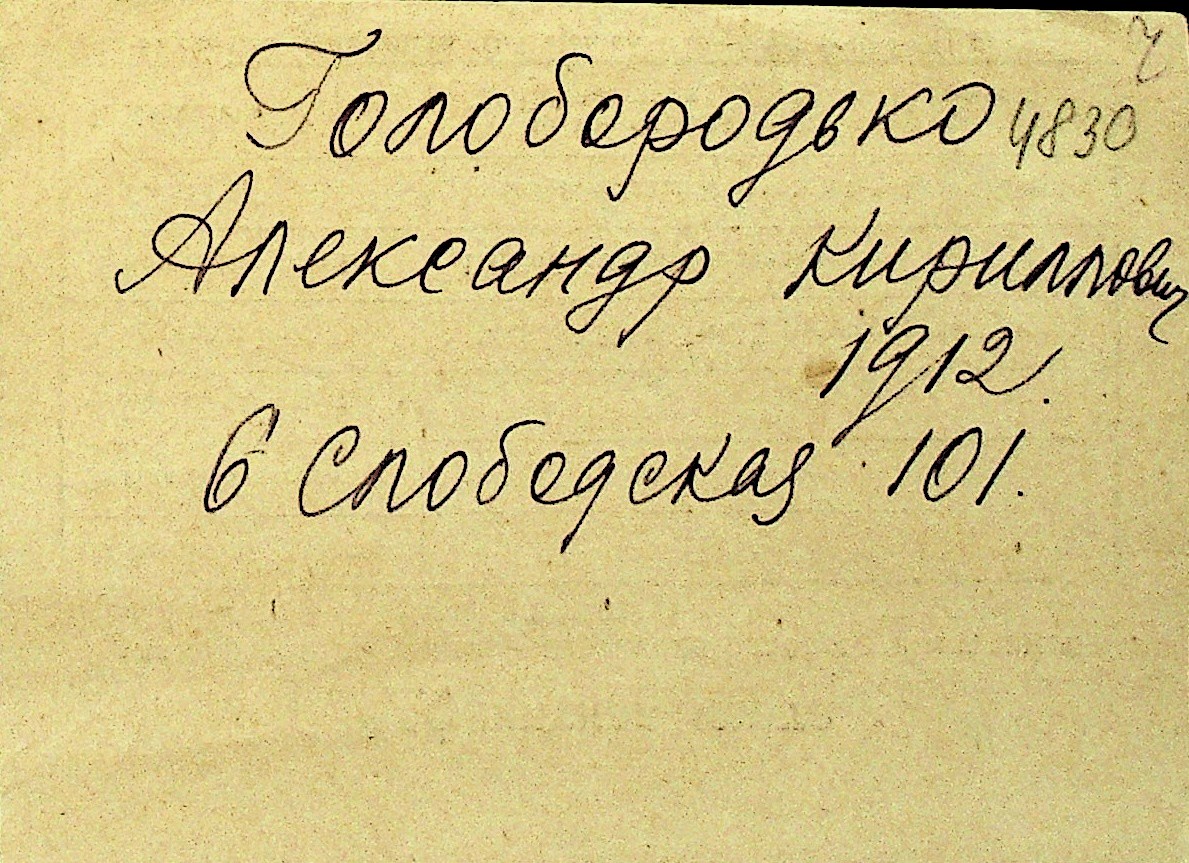 Ч
Голобородько 4830
Александр Кириллович
1912.
6 Слободская 101.